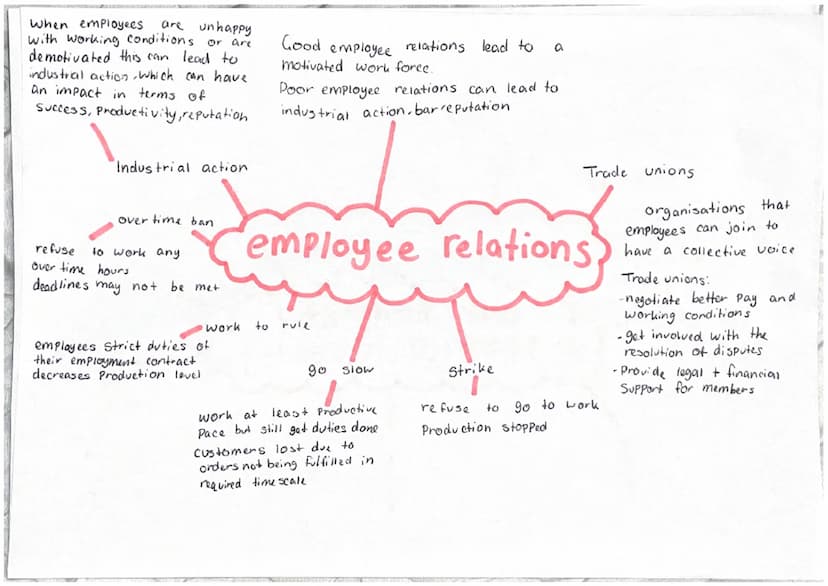 When employees are unhappy
with working conditions or are
demotivated this can lead to
industrial action. Which can have
an impact in terms of
success, productivity, reputation
Good employee relations lead to a
motivated work force.
Poor employee relations can lead to
industrial action, bar reputation
Industrial action
Trade unions
organisations that
employees can join to
have a collective voice
Trade unions:
-negotiate better pay and
working conditions
-get involved with the
resolution of disputes
-Provide legal + financial
support for members
over time ban
refuse to work any
over time hours
deadlines may not be met
employee relations
work to rule
employees strict duties of
their employment contract
decreases production level
go slow
work at least productive
pace but still get duties done
customers lost due to
orders not being fulfilled in
required timescale
Strike
refuse to go to work
Production stopped